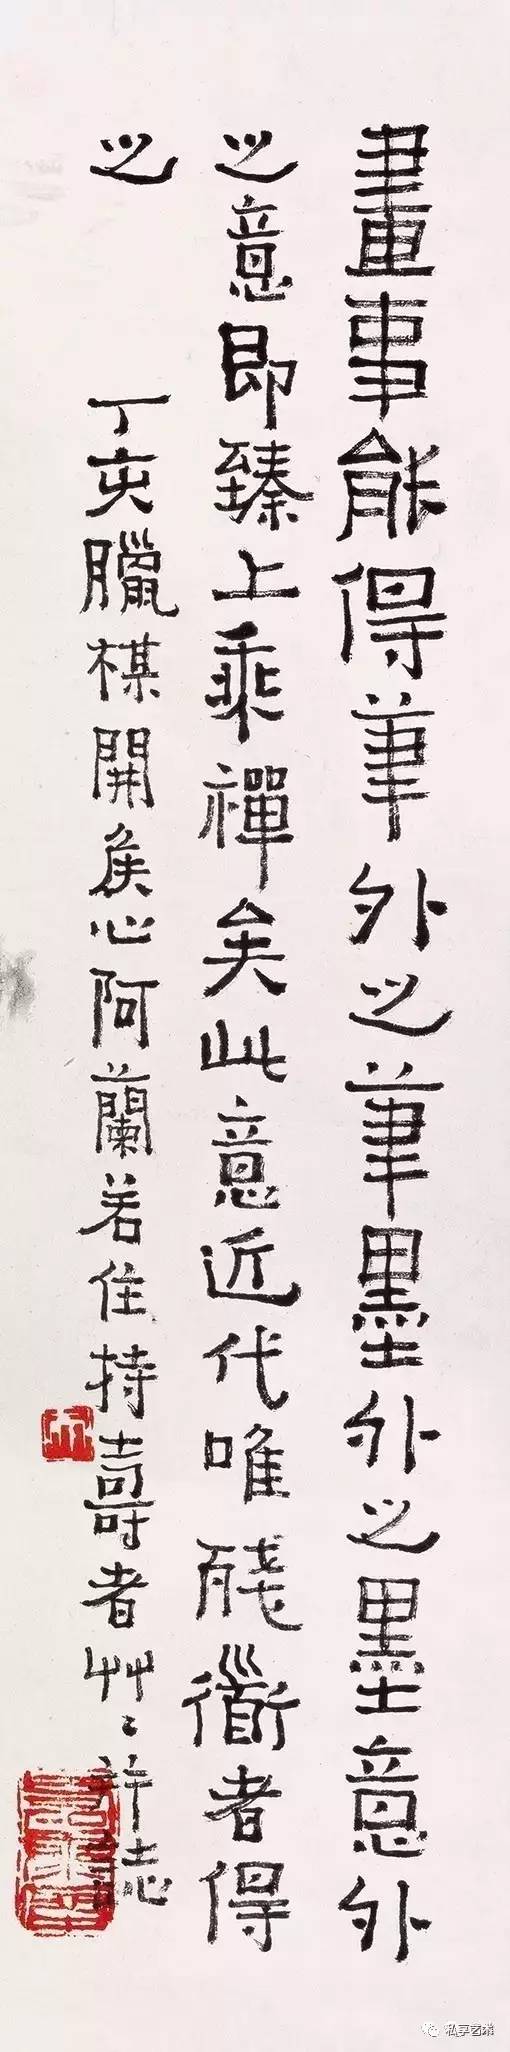 畫事能得筆外之筆墨外之墨意外
之意即臻上乘禪矣此意近代唯殘衜者得
之
丁亥臘楳開矦心阿蘭若住持壽者艸〻并誌
私享艺术